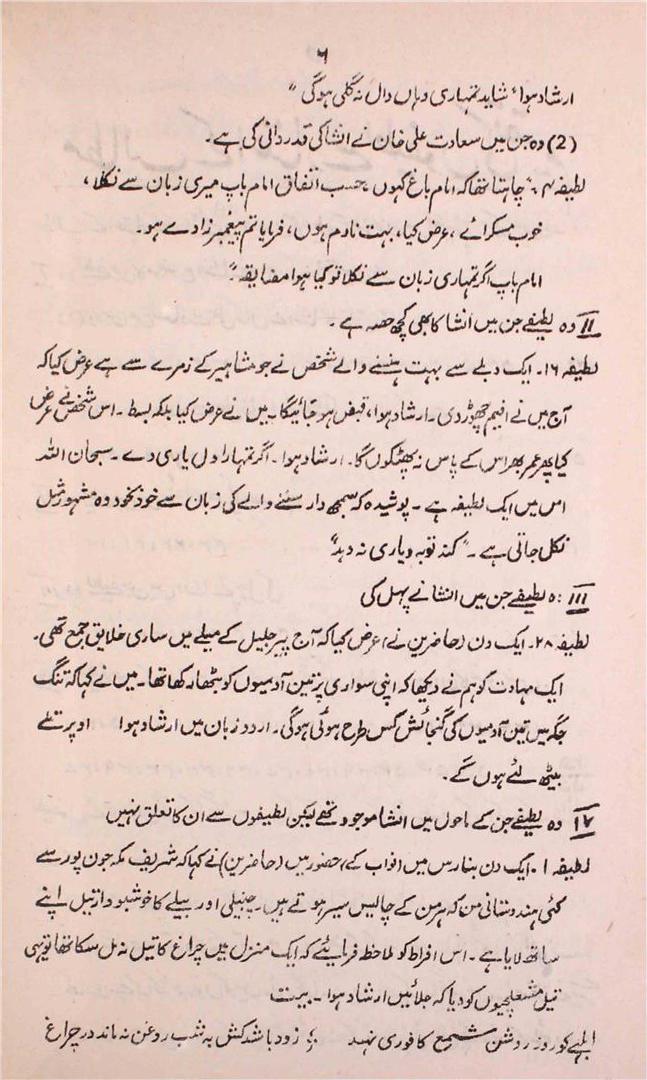 ۶
ارشاد ہوا "شاید تمہاری وہاں دال نہ گلی ہوگی"
(2) وہ جن میں سعادت علی خان نے انشا کی قدردانی کی ہے۔
لطیفہ ۴۔ "چاہتا تھا کہ امام باغ کہوں، حسب اتفاق امام باپ میری زبان سے نکلا،
خوب مسکرائے، عرض کیا، بہت نادم ہوں، فرمایا تم پیغمبر زادے ہو۔
امام باپ اگر تمہاری زبان سے نکلا تو کیا ہوا مضایقہ"۔
II وہ لطیفے جن میں انشا کا بھی کچھ حصہ ہے۔
لطیفہ ۱۶۔ ایک دبلے سے بہت ہنسنے والے شخص نے جو مشاہیر کے زمرے سے ہے عرض کیا کہ
آج میں نے افیم چھوڑ دی۔ ارشاد ہوا، قبض ہو جائیگا۔ میں نے عرض کیا بلکہ بسط۔ اس شخص نے عرض
کیا پھر عمر بھر اس کے پاس نہ پھٹکوں گا۔ ارشاد ہوا۔ اگر تمہارا دل یاری دے۔ سبحان اللہ
اس میں ایک لطیفہ ہے۔ پوشیدہ کہ سمجھ دار سننے والے کی زبان سے خود بخود وہ مشہور مثل
نکل جاتی ہے۔ "کند توبہ و یاری نہ دہد"
III :ہ لطیفے جن میں انشا نے پہل کی
لطیفہ ۲۸۔ ایک دن (حاضرین نے) عرض کیا کہ آج پیر جلیل کے میلے میں ساری خلایق جمع تھی۔
ایک مہادت کو ہم نے دیکھا کہ اپنی سواری پر تین آدمیوں کو بٹھا رکھا تھا۔ میں نے کہا کہ تنگ
جگہ میں تین آدمیوں کی گنجائش کس طرح ہوئی ہوگی۔ اردو زبان میں ارشاد ہوا اوپر تلے
بیٹھ لئے ہوں گے۔
IV وہ لطیفے جن کے ماحول میں انشا موجود تھے لیکن لطیفوں سے ان کا تعلق نہیں
لطیفہ ۱۔ ایک دن بنارس میں (نواب کے) حضور میں (حاضرین) نے کہا کہ شریف مکہ جون پور سے
کئی ہندوستانی من کہ ہر من کے چالیس سیر ہوتے ہیں۔ چنبیلی اور بیلے کا خوشبودار تیل اپنے
ساتھ لایا ہے۔ اس افراط کو ملاحظہ فرمایئے کہ ایک منزل میں چراغ کا تیل نہ مل سکا تھا تو یہی
تیل مشعلچیوں کو دیا کہ جلائیں ارشاد ہوا۔ بیت
ابلہے کو روز روشن شمع کافوری نہد ؛ زود باشد کش بہ شب روغن نہ ماند در چراغ